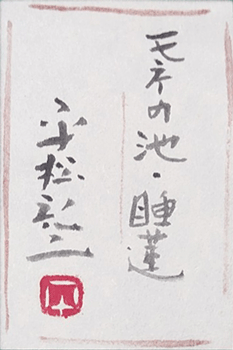 モネの池・睡蓮
平松礼二